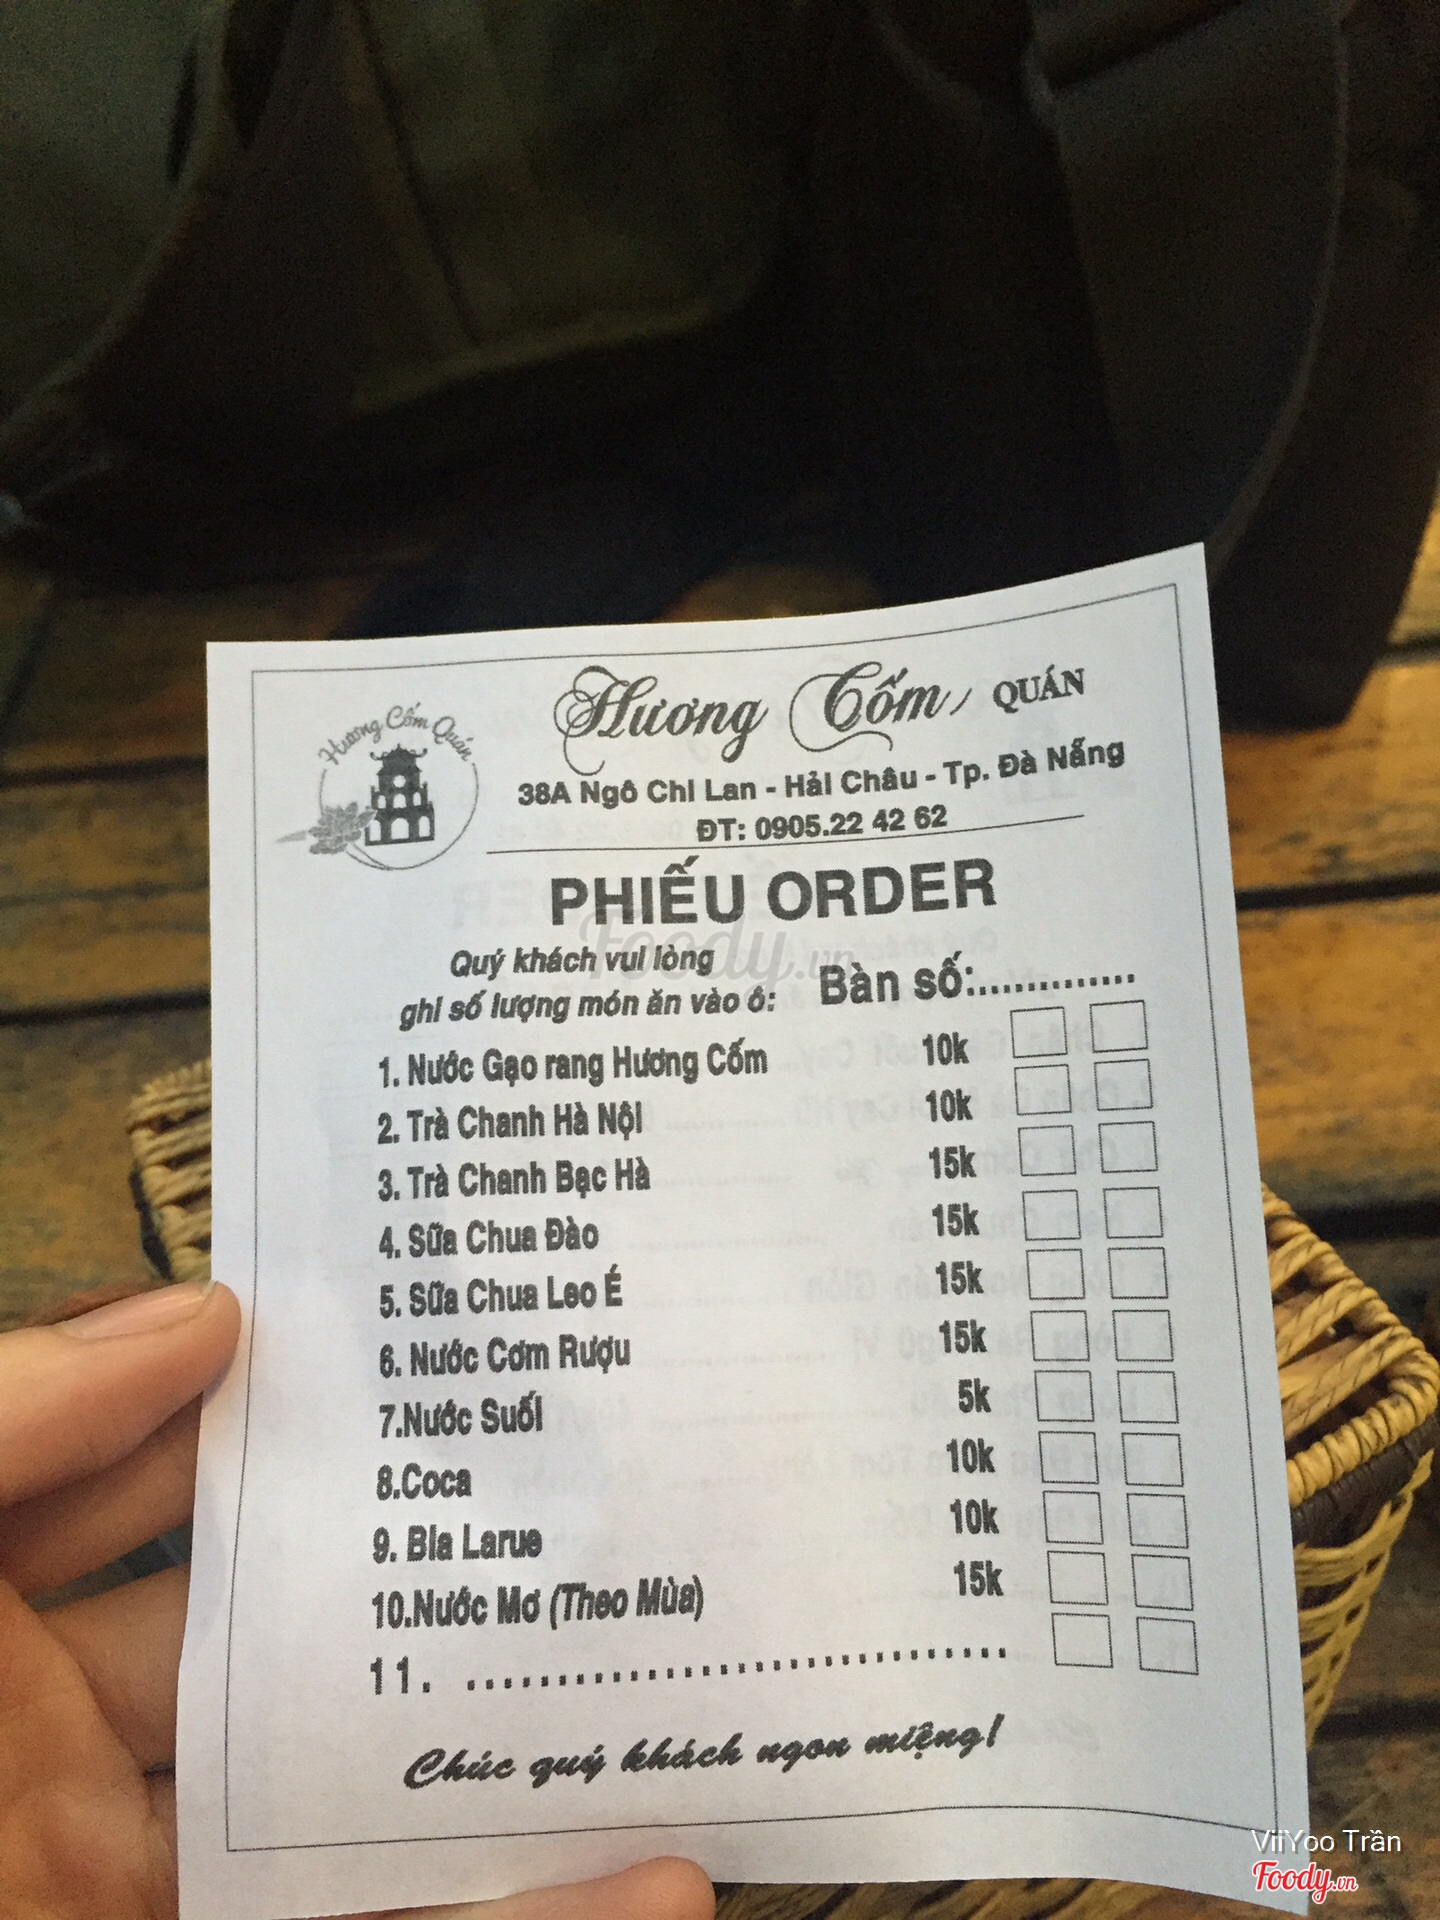 Hương Cốm Quán
Hương Cốm QUÁN
38A Ngô Chi Lan - Hải Châu - Tp. Đà Nẵng
ĐT: 0905.22 42 62
PHIẾU ORDER
Quý khách vui lòng
ghi số lượng món ăn vào ô:
Bàn số:..............
1. Nước Gạo rang Hương Cốm 10k
2. Trà Chanh Hà Nội 10k
3. Trà Chanh Bạc Hà 15k
4. Sữa Chua Đào 15k
5. Sữa Chua Leo É 15k
6. Nước Cơm Rượu 15k
7.Nước Suối 5k
8.Coca 10k
9. Bia Larue 10k
10.Nước Mơ (Theo Mùa) 15k
11. ..............................
Chúc quý khách ngon miệng!
Foody.vn
ViiYoo Trần
Foody.vn